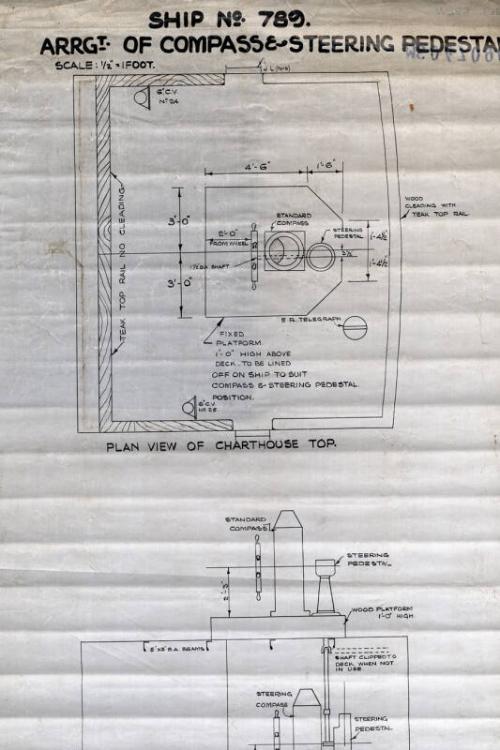 SHIP Nº 789.
ARRGT. OF COMPASS & STEERING PEDESTA
SCALE: 1/2" = 1 FOOT.
6" C.V.
Nº 24
4'-6"
1'-6"
WOOD
CLEADING WITH
TEAK TOP RAIL
TEAK TOP RAIL NO CLEADING
STANDARD
COMPASS
STEERING
PEDESTAL
3'-0"
2'-0"
FROM WHEEL
1'-4½"
3½"
1'-4½"
DIA SHAFT
3'-0"
E.R. TELEGRAPH
FIXED
PLATFORM
1'-0" HIGH ABOVE
DECK. TO BE LINED
OFF ON SHIP TO SUIT
COMPASS & STEERING PEDESTAL
POSITION.
6" C.V.
PLAN VIEW OF CHARTHOUSE TOP.
STANDARD
COMPASS
STEERING
PEDESTAL
WOOD PLATFORM
1'-0" HIGH
B.A. BEAMS
SHAFT CLIPPED TO
DECK WHEN NOT
IN USE
STEERING
COMPASS
STEERING
PEDESTAL